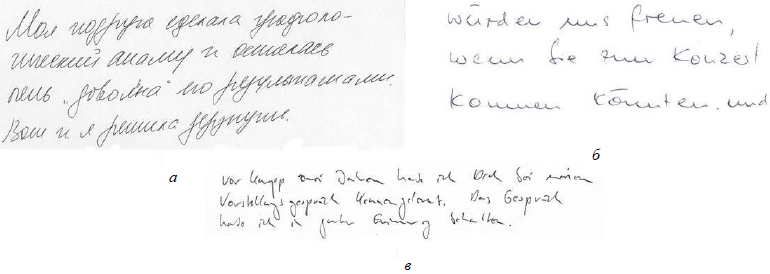 Моя подруга сделала графоло-
гический анализ и осталась
чень „довольна" его результатами.
Вот и я решила дерзнуть.
а
würden uns freuen,
wenn Sie zum Konzert
kommen könnten. und
б
vor knapp zwei Jahren habe ich bei meinem
Vorstellungsgespräch kennengelernt. Das Gespräch
habe ich in guter Erinnerung behalten.
в